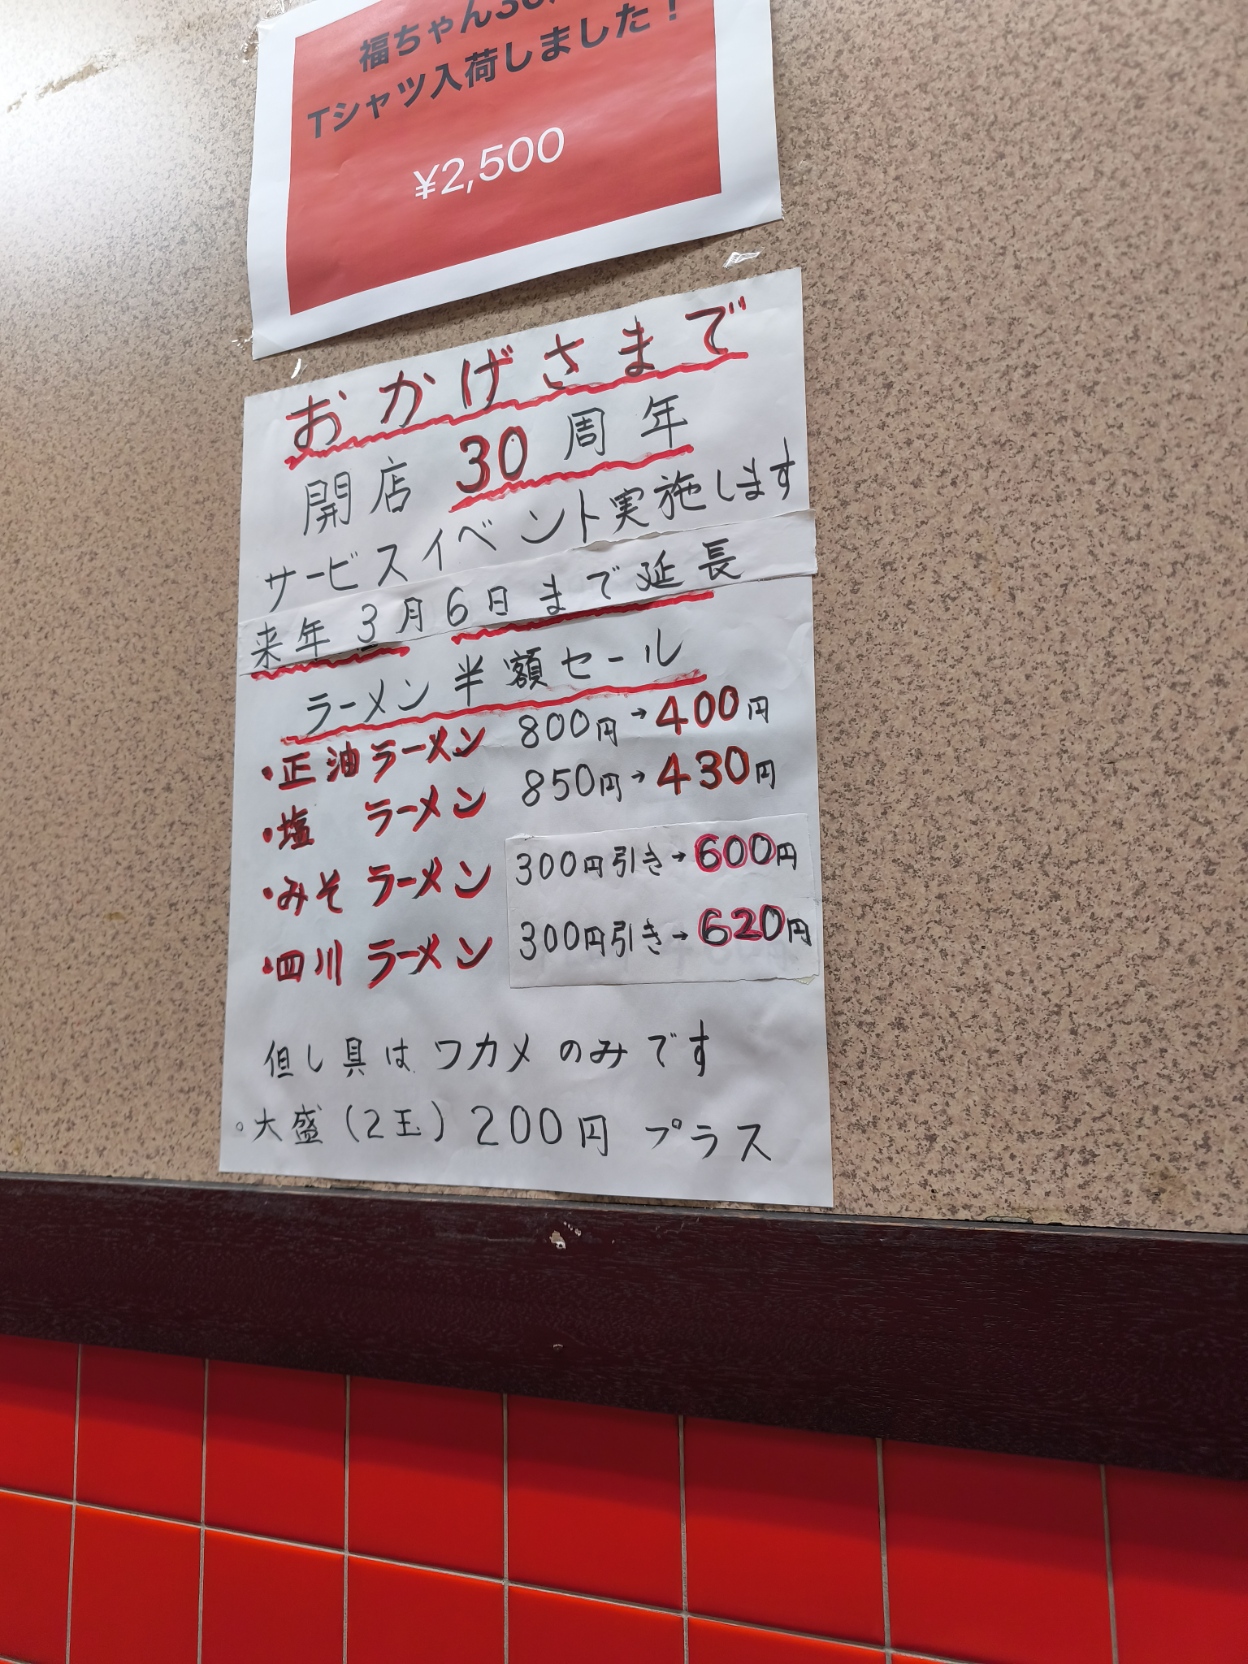 福ちゃん30
Tシャツ入荷しました！
¥2,500
おかげさまで
開店 30周年
サービスイベント実施します
来年3月6日まで延長
ラーメン半額セール
・正油ラーメン 800円→400円
・塩 ラーメン 850円→430円
・みそラーメン 300円引き→600円
・四川ラーメン 300円引き→620円
但し具はワカメのみです
。大盛(2玉)200円 プラス